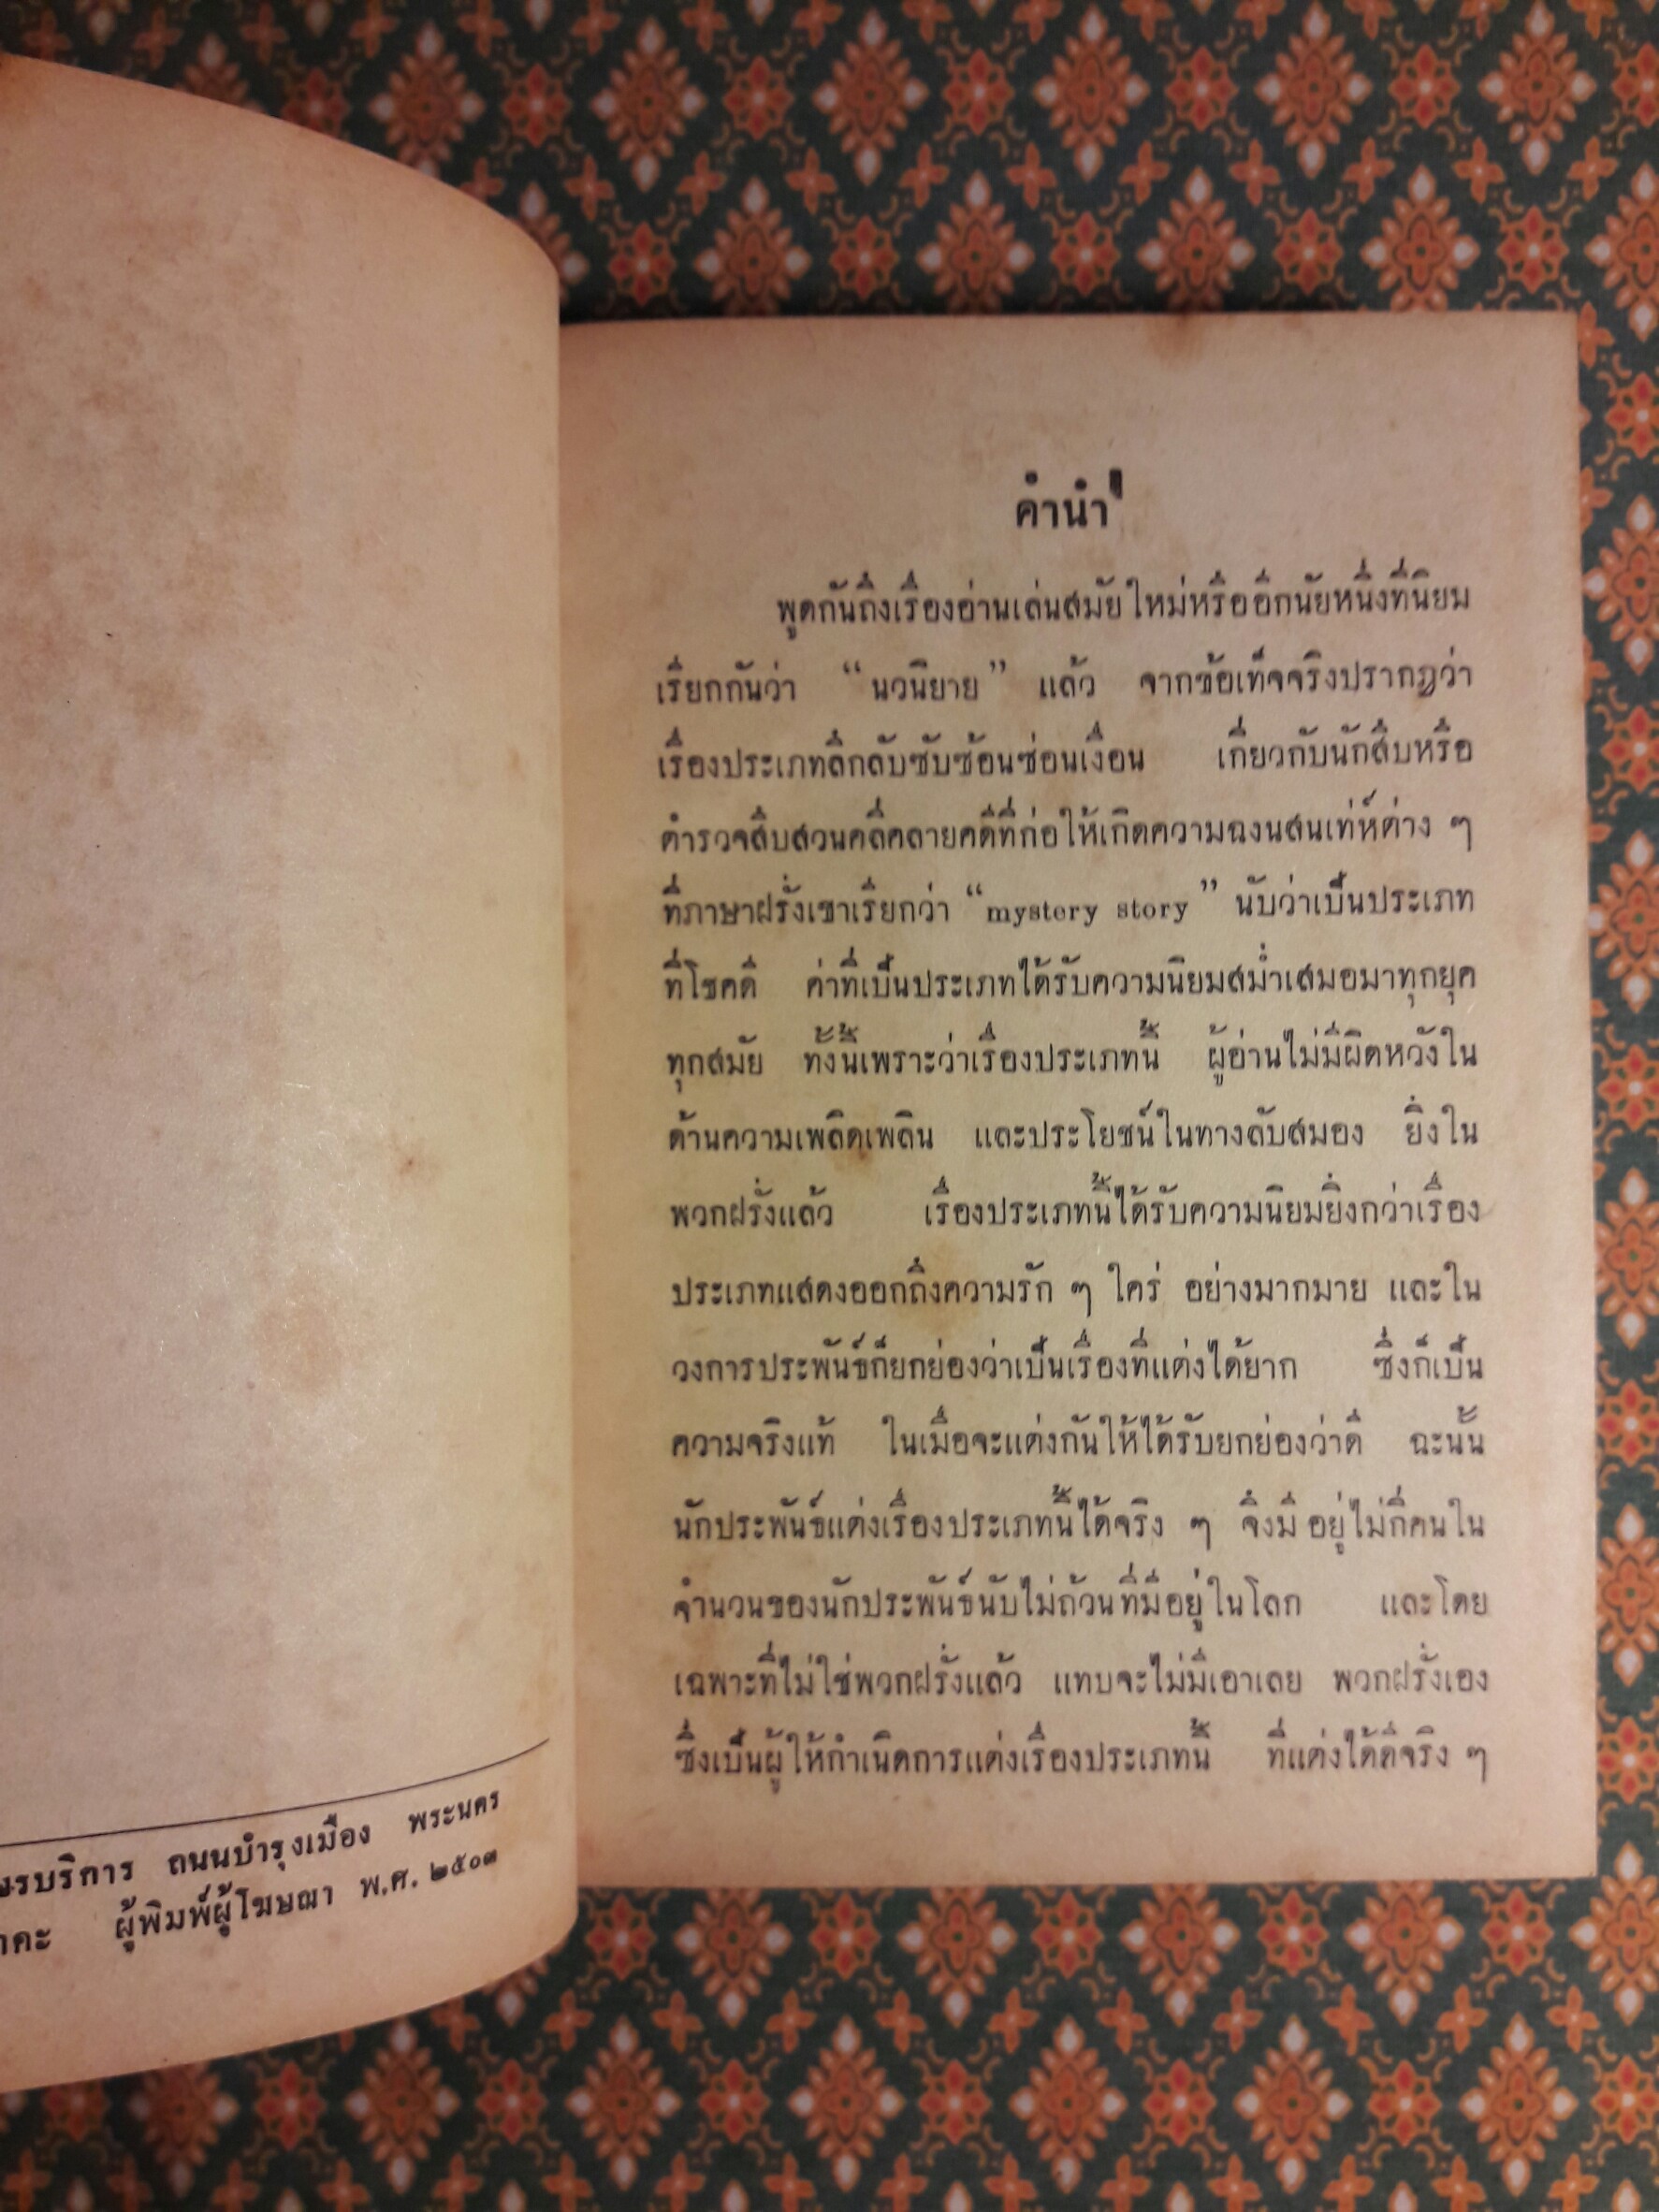 ษรบริการ ถนนบำรุงเมือง พระนคร
าคะ ผู้พิมพ์ผู้โฆษณา พ.ศ. ๒๕๐๓
คำนำ
พูดกันถึงเรื่องอ่านเล่นสมัยใหม่หรืออีกนัยหนึ่งที่นิยม
เรียกกันว่า “นวนิยาย” แล้ว จากข้อเท็จจริงปรากฏว่า
เรื่องประเภทลึกลับซับซ้อนซ่อนเงื่อน เกี่ยวกับนักสืบหรือ
ตำรวจสืบสวนคลี่คลายคดีที่ก่อให้เกิดความฉงนสนเท่ห์ต่าง ๆ
ที่ภาษาฝรั่งเขาเรียกว่า “mystery story” นับว่าเป็นประเภท
ที่โชคดี ค่าที่เป็นประเภทได้รับความนิยมสม่ำเสมอมาทุกยุค
ทุกสมัย ทั้งนี้เพราะว่าเรื่องประเภทนี้ ผู้อ่านไม่มีผิดหวังใน
ด้านความเพลิดเพลิน และประโยชน์ในทางลับสมอง ยิ่งใน
พวกฝรั่งแล้ว เรื่องประเภทนี้ได้รับความนิยมยิ่งกว่าเรื่อง
ประเภทแสดงออกถึงความรัก ๆ ใคร่ อย่างมากมาย และใน
วงการประพันธ์ก็ยกย่องว่าเป็นเรื่องที่แต่งได้ยาก ซึ่งก็เป็น
ความจริงแท้ ในเมื่อจะแต่งกันให้ได้รับยกย่องว่าดี ฉะนั้น
นักประพันธ์แต่งเรื่องประเภทนี้ได้จริง ๆ จึงมีอยู่ไม่กี่คนใน
จำนวนของนักประพันธ์นับไม่ถ้วนที่มีอยู่ในโลก และโดย
เฉพาะที่ไม่ใช่พวกฝรั่งแล้ว แทบจะไม่มีเอาเลย พวกฝรั่งเอง
ซึ่งเป็นผู้ให้กำเนิดการแต่งเรื่องประเภทนี้ ที่แต่งได้ดีจริง ๆ